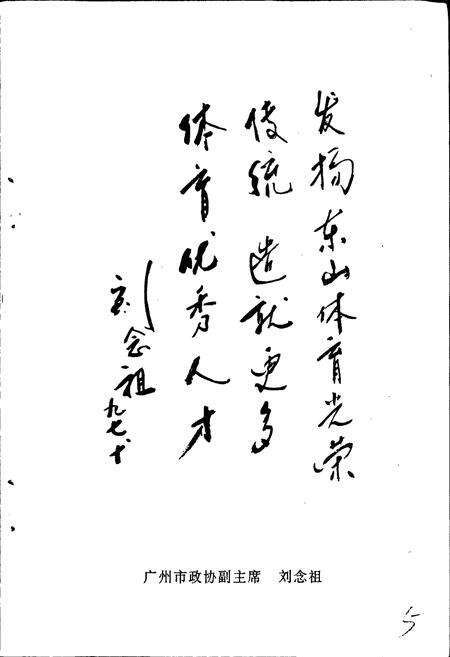 发扬东山体育光荣
传统 造就更多
体育优秀人才
刘念祖
九七、十
广州市政协副主席 刘念祖